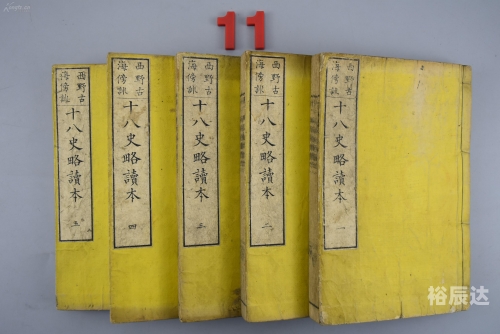 11
西野古
海傍訓
十八史略讀本
一
西野古
海傍訓
十八史略讀本
二
西野古
海傍訓
十八史略讀本
三
西野古
海傍訓
十八史略讀本
四
西野古
海傍訓
十八史略讀本
五
裕辰达